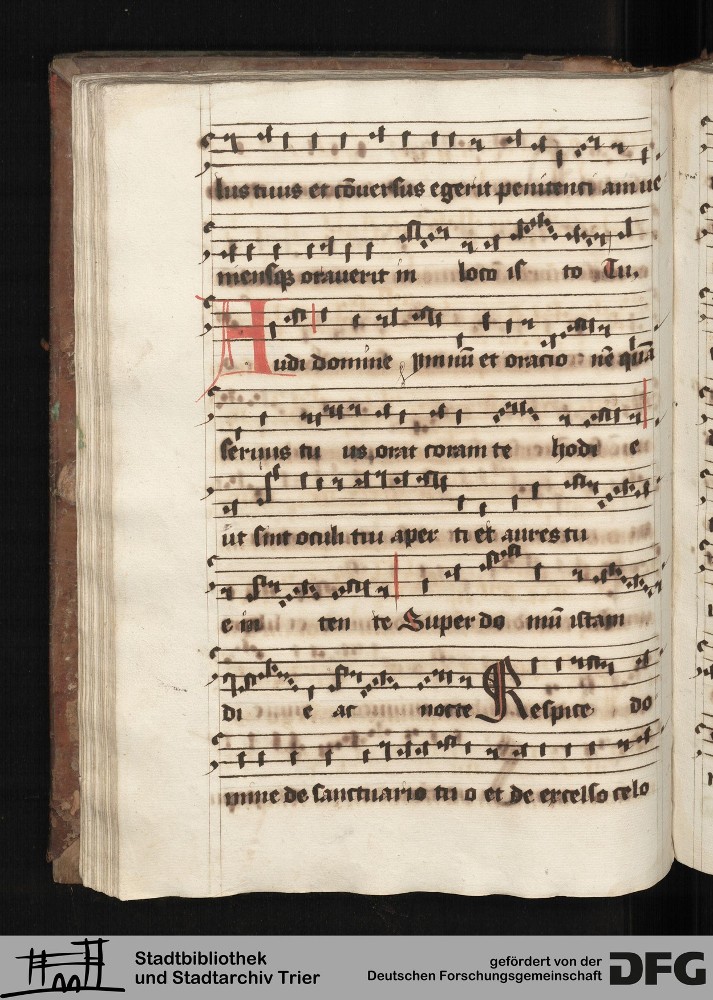 lus tuus et cōversus egerit penitenci am ue
niensqꝫ oraverit in loco is to Tu.
Audi domine ymnū et oracio nē quā
servus tu us orat coram te hodi e
ut sint oculi tui aper ti et aures tu
e in ten te Super do mū istam
di e ac nocte Respice do
mine de sanctuario tu o et de excelso celo
Stadtbibliothek
und Stadtarchiv Trier
gefördert von der
Deutschen Forschungsgemeinschaft
DFG